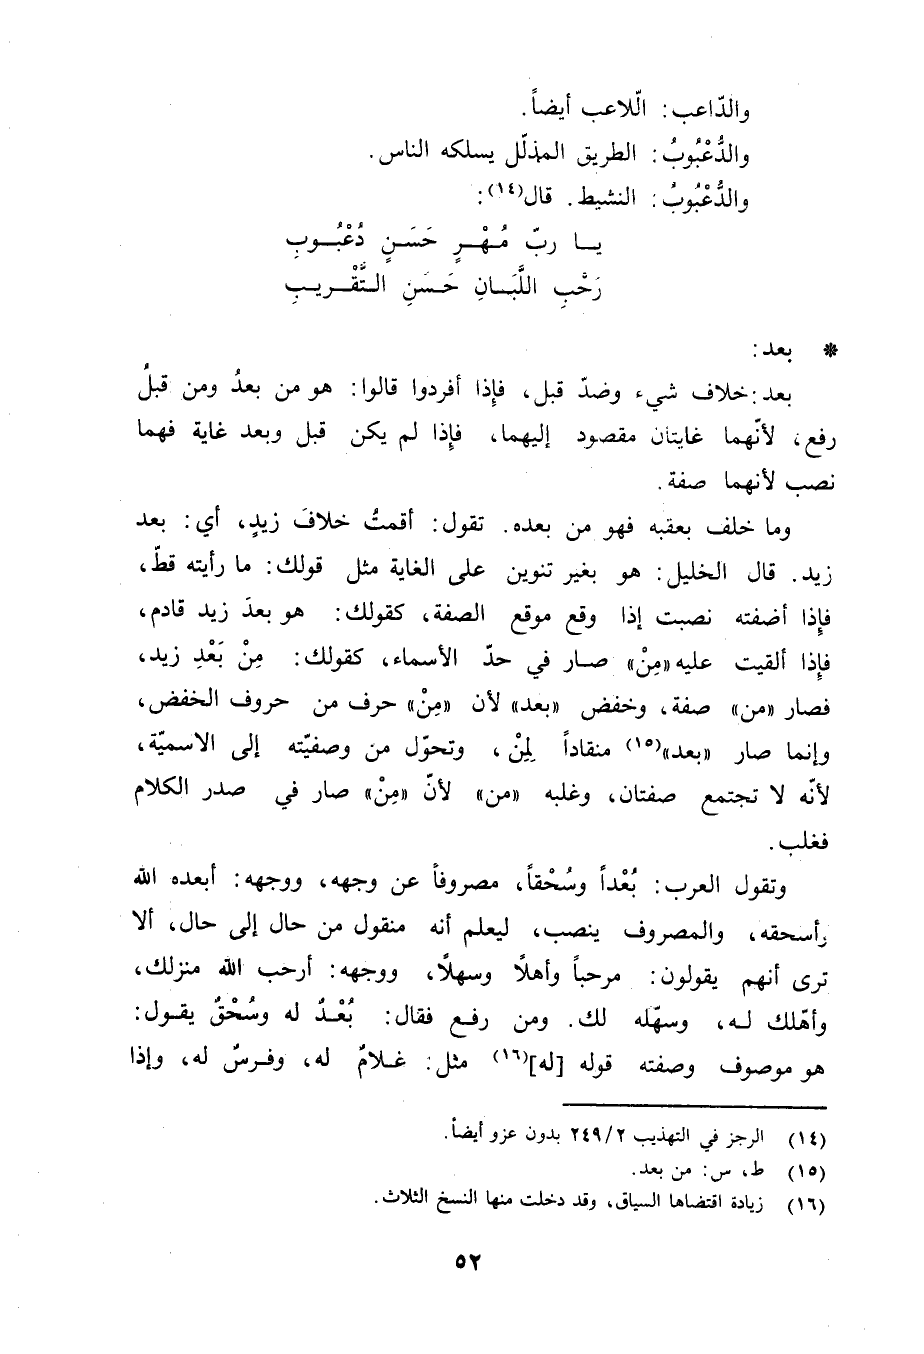 والدّاعب: الّلاعب أيضاً.
والدُّعْبُوبُ: الطريق المذلّل يسلكه الناس.
والدُّعْبُوبُ: النشيط. قال(١٤):
يــا ربّ مُـهْـرٍ حَسَـنٍ دُعْبُــوبِ
رَحْبِ اللَّبَــانِ حَـسَنِ الـتَّقْــريـبِ
* بعد:
بعد: خلاف شيء وضدّ قبل، فإذا أفردوا قالوا: هو من بعدُ ومن قبلُ
رفع، لأنّهما غايتان مقصود إليهما، فإذا لم يكن قبل وبعد غاية فهما
نصب لأنهما صفة.
وما خلف بعقبه فهو من بعده. تقول: أقمتُ خلافَ زيدٍ، أي: بعد
زيد. قال الخليل: هو بغير تنوين على الغاية مثل قولك: ما رأيته قطّ،
فإذا أضفته نصبت إذا وقع موقع الصفة، كقولك: هو بعدَ زيد قادم،
فإذا ألقيت عليه «مِنْ» صـار في حدّ الأسماء، كقولك: مِنْ بَعْدِ زيد،
فصار «من» صفة، وخفض «بعد» لأن «مِنْ» حرف من حروف الخفض،
وإنما صار «بعد»(١٥) منقاداً لِمِنْ، وتحوّل من وصفيّته إلى الاسميّة،
لأنّه لا تجتمع صفتان، وغلبه «من» لأنّ «مِنْ» صار في صدر الكلام
فغلب.
وتقول العرب: بُعْداً وسُحْقاً، مصروفاً عن وجهه، ووجهه: أبعده الله
وأسحقه، والمصروف ينصب، ليعلم أنه منقول من حال إلى حال، ألا
ترى أنهم يقولون: مرحباً وأهلًا وسهلًا، ووجهه: أرحب الله منزلك،
وأهّلك لـه، وسهّله لك. ومن رفـع فقال: بُعْـدٌ له وسُحْقٌ يقـول:
هو موصوف وصفته قوله [له](١٦) مثل: غـلامٌ له، وفـرسٌ له، وإذا
(١٤) الرجز في التهذيب ٢٤٩/٢ بدون عزو أيضاً.
(١٥) ط، س: من بعد.
(١٦) زيادة اقتضاها السياق، وقد دخلت منها النسخ الثلاث.
٥٢